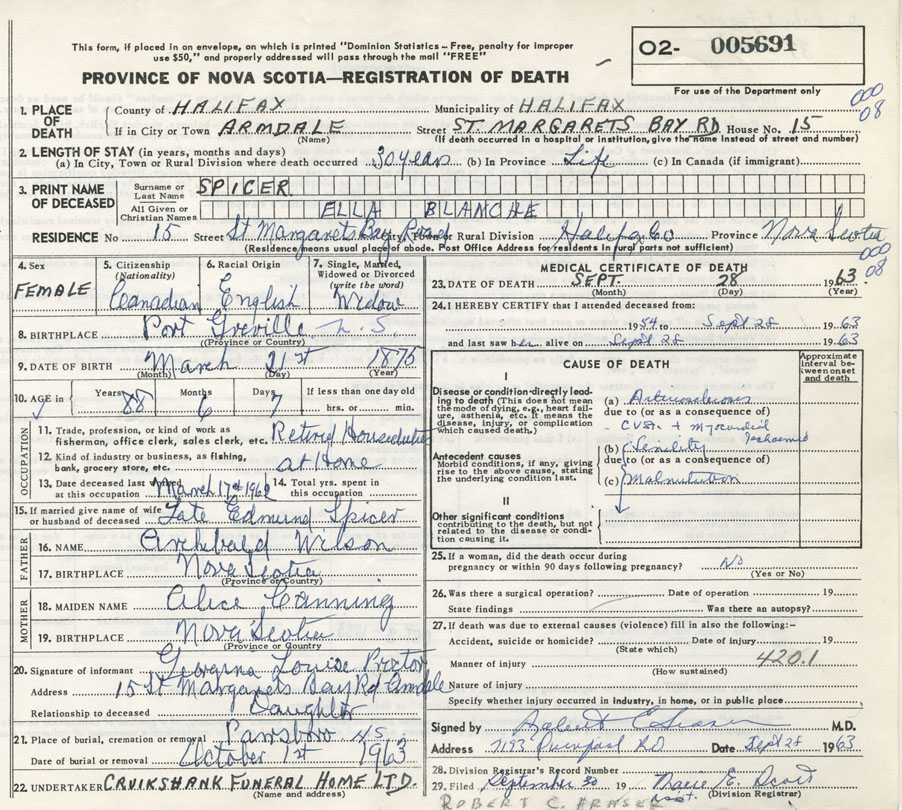 This form, if placed in an envelope, on which is printed "Dominion Statistics – Free, penalty for improper
use $50," and properly addressed will pass through the mail "FREE"
PROVINCE OF NOVA SCOTIA—REGISTRATION OF DEATH
02- 005691
For use of the Department only
000
08
1. PLACE OF DEATH
County of HALIFAX Municipality of HALIFAX
If in City or Town ARMDALE Street ST. MARGARETS BAY RD House No. 15
(Name) (If death occurred in a hospital or institution, give the name instead of street and number)
2. LENGTH OF STAY (in years, months and days)
(a) In City, Town or Rural Division where death occurred 30 years (b) In Province Life (c) In Canada (if immigrant)
3. PRINT NAME OF DECEASED
Surname or Last Name SPICER
All Given or Christian Names ELLA BLANCHE
RESIDENCE No 15 Street St Margarets Bay Road, Rural Division Halifax Co Province Nova Scotia
(Residence means usual place of abode. Post Office Address for residents in rural parts not sufficient)
000
08
4. Sex FEMALE
5. Citizenship (Nationality) Canadian
6. Racial Origin English
7. Single, Married, Widowed or Divorced (write the word) Widow
8. BIRTHPLACE Port Greville N.S.
(Province or Country)
9. DATE OF BIRTH March 21st 1875
(Month) (Day) (Year)
10. AGE in Years 88 Months 6 Days 7 If less than one day old hrs. or min.
OCCUPATION
11. Trade, profession, or kind of work as fisherman, office clerk, sales clerk, etc. Retired Housedutie
12. Kind of industry or business, as fishing, bank, grocery store, etc. at Home
13. Date deceased last worked at this occupation March 17st 1962 14. Total yrs. spent in this occupation
15. If married give name of wife or husband of deceased Late Edmund Spicer
FATHER
16. NAME Archibald Wilson
17. BIRTHPLACE Nova Scotia
(Province or Country)
MOTHER
18. MAIDEN NAME Alice Canning
19. BIRTHPLACE Nova Scotia
(Province or Country)
20. Signature of informant Georgina Louise Proctor
Address 15 St Margarets Bay Rd Armdale
Relationship to deceased Daughter
21. Place of burial, cremation or removal Parrsboro NS
Date of burial or removal October 1st 1963
22. UNDERTAKER CRUIKSHANK FUNERAL HOME LTD.
(Name and address)
MEDICAL CERTIFICATE OF DEATH
23. DATE OF DEATH SEPT. 28 1963
(Month) (Day) (Year)
24. I HEREBY CERTIFY that I attended deceased from:
1954 to Sept 28 1963
and last saw her alive on Sept 28 1963
CAUSE OF DEATH
Approximate interval between onset and death
I
Disease or condition directly leading to death (This does not mean the mode of dying, e.g., heart failure, asthenia, etc. It means the disease, injury, or complication which caused death.)
(a) Arteriosclerosis
due to (or as a consequence of)
Antecedent causes
Morbid conditions, if any, giving rise to the above cause, stating the underlying condition last.
(b) Senility
due to (or as a consequence of)
(c) Malnutrition
II
Other significant conditions
contributing to the death, but not related to the disease or condition causing it.
25. If a woman, did the death occur during pregnancy or within 90 days following pregnancy? No
(Yes or No)
26. Was there a surgical operation? Date of operation 19
State findings Was there an autopsy?
27. If death was due to external causes (violence) fill in also the following:-
Accident, suicide or homicide? Date of injury 19
(State which)
Manner of injury 420.1
(How sustained)
Nature of injury
Specify whether injury occurred in Industry, in home, or in public place
Signed by M.D.
Address 7193 Date Sept 28 1963
28. Division Registrar's Record Number
29. Filed September 30 19 Marie E. Scott
Asst. (Division Registrar)
ROBERT C.